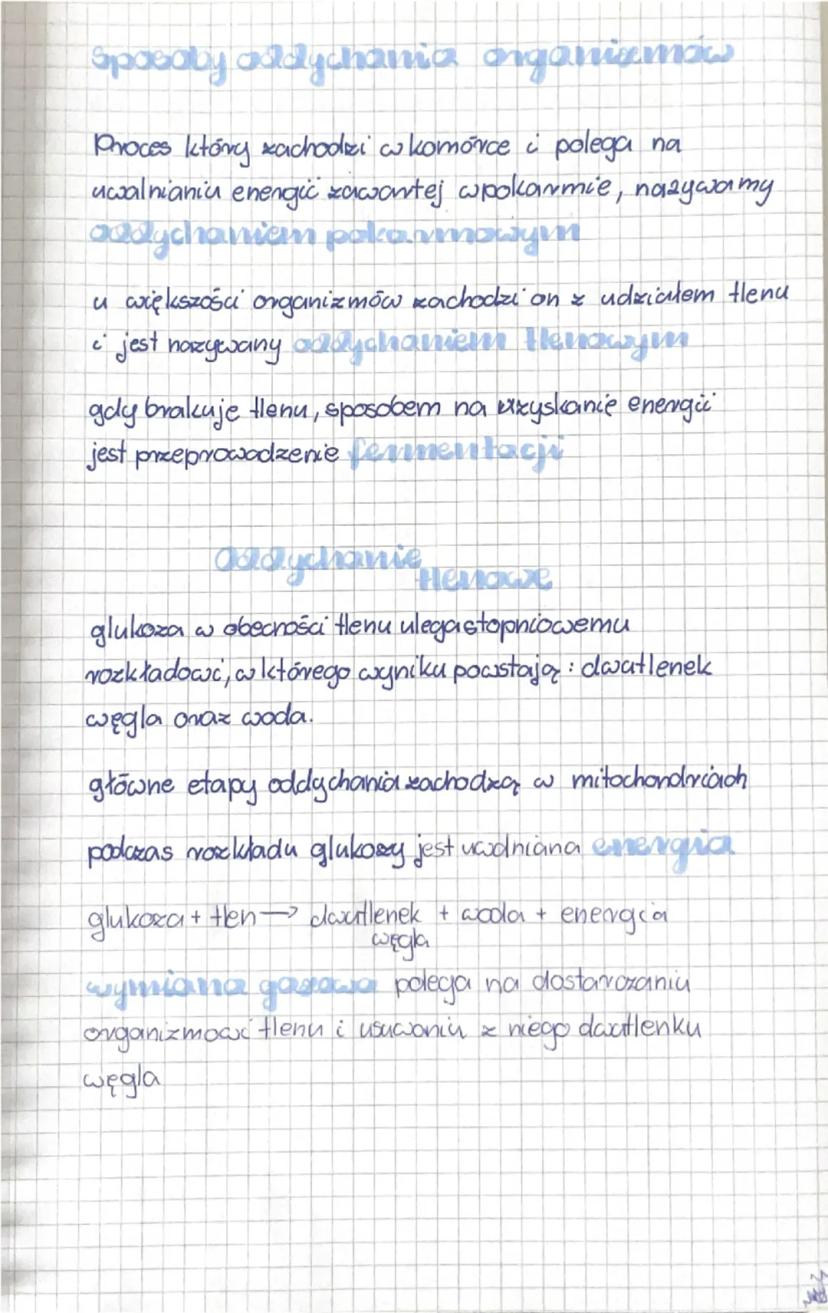 sposoby oddychania organizmów
Proces który zachodzi w komórce i polega na
uwalnianiu energii zawartej w pokarmie, nazywamy
oddychaniem pokarmowym
u większości organizmów zachodzi on z udziałem tlenu
i jest nazywany oddychaniem tlenowym
gdy brakuje tlenu, sposobem na uzyskanie energii
jest przeprowadzenie fermentacji
Oddychanie
tlenowe
glukoza w obecności tlenu ulega stopniowemu
rozkładowi, w którego wyniku powstają: dwutlenek
węgla oraz woda.
główne etapy oddychania zachodzą w mitochondriach
podczas rozkładu glukozy jest uwalniana energia
glukoza + tlen → dwutlenek + woda + energia
węgla
wymiana gazowa polega na dostarczaniu
organizmowi tlenu i usuwaniu z niego dwutlenku
węgla